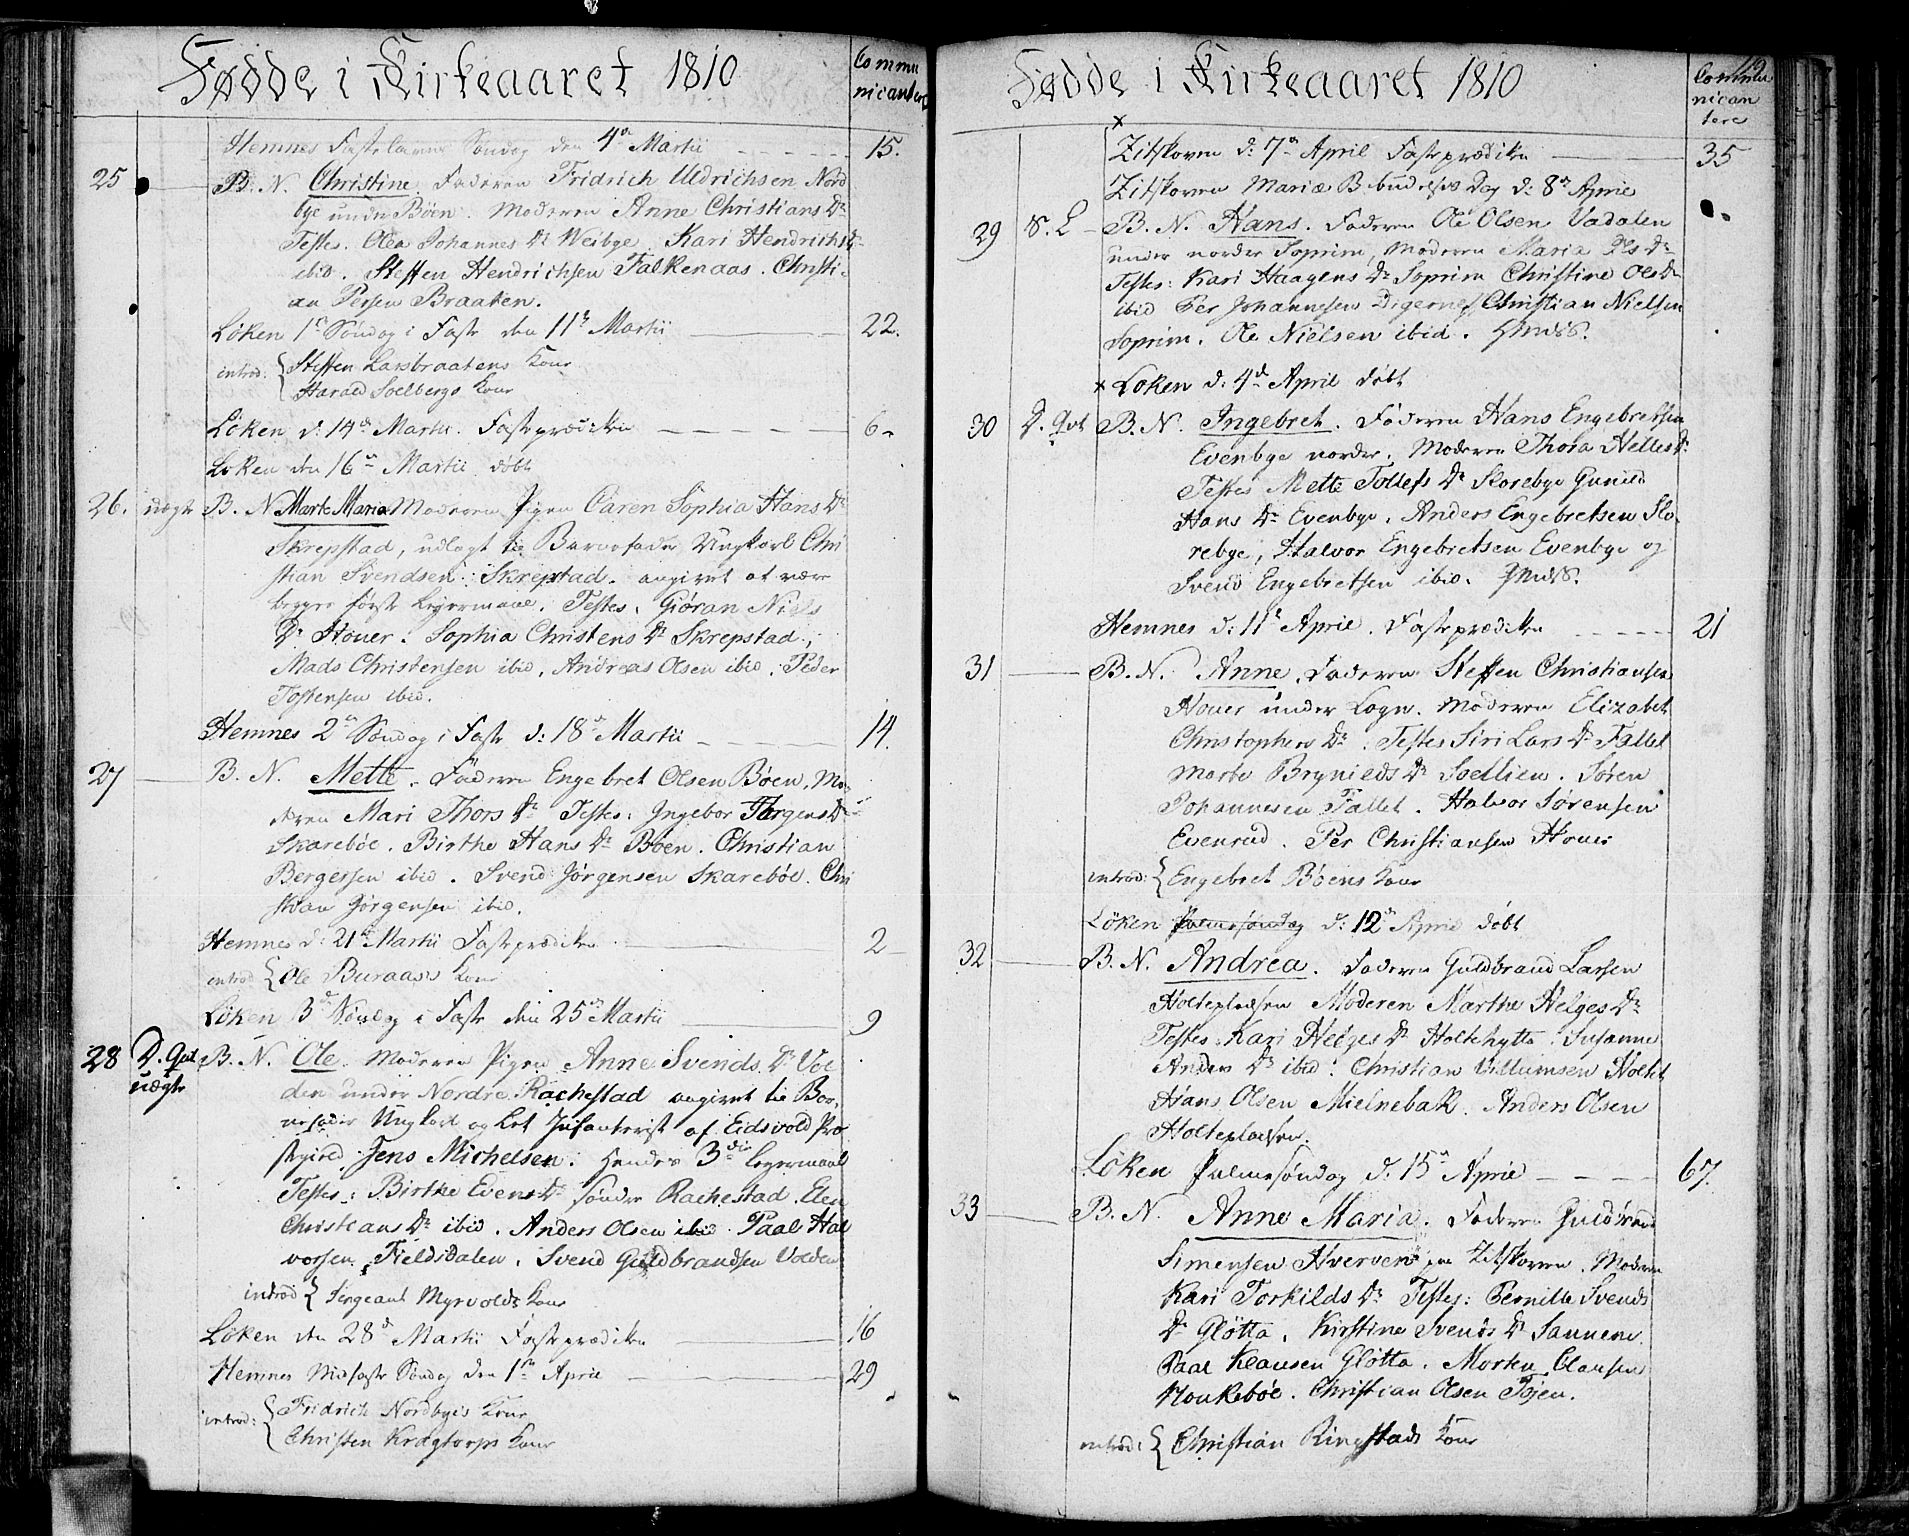 Fødde i Kirkeaaret 1810
Commu
nicantere
Hemnes Fastelavns Søndag den 4de Martii 15.
25 B. N. Christine. Faderen Fridrich Uldrichsen Nord
bye under Bøen. Moderen Anne Christians Dr
Testes. Olea Johannes Dr Weibye. Kari Hendrichs Dr
ibid. Steffen Hendrichsen Falkenaas. Christi-
an Persen Braaten.
Løken 1ste Søndag i Faste den 11te Martii 22.
introd: { Steffen Larsbraatens Kone
Harald Soelbergs Kone
Løken d: 14de Martii. Fasteprædiken 6
Løken den 16de Martii døbt
26. uægte B. N. Marte Maria Moderen Pigen Caren Sophia Hans Dr
Skrepstad, udlagt til Barnefader Ungkarl Chri
stian Svendsen Skrepstad. angivet at være
begges første Leyermaal. Testes. Gjøran Niels
Dr Houer. Sophia Christens Dr Skrepstad,
Mads Christensen ibid. Andreas Olsen ibid. Peder
Tostensen ibid.
Hemnes 2den Søndag i Faste d: 18de Martii 14.
27 B. N. Mette. Faderen Engebret Olsen Bøen. Mo-
deren Mari Thors Dr Testes: Ingebor Jørgens Dr
Skarebøe. Birthe Hans Dr Bøen. Christian
Bergersen ibid. Svend Jørgensen Skarebøe. Chri
stian Jørgensen ibid.
Hemnes d: 21de Martii Fasteprædiken 2
introd { Ole Buraases Kone
Løken 3de Søndag i Faste den 25de Martii 9
28 D. Qvt B. N. Ole. Moderen Pigen Anne Svends Dr Vol
uægte den under Nordre Rachestad angivet til Bar-
nefader Ungkarl og Let Infanterist af Eidsvold Præ
stegield Jens Michelsen. Hendes 3die Leyermaal
Testes: Birthe Evens Dr søndre Rachestad. Elen
Christians Dr ibid. Anders Olsen ibid. Paal Hal
vorsen Fieldsdalen. Svend Guldbrandsen Volden
introd { Sergeant Myrvolds Kone
Løken den 28de Martii Fasteprædiken 16
Hemnes Midfaste Søndag den 1ste April 29
introd: { Fridrich Nordbyes Kone
Christen Kragtorps Kone
Fødde i Kirkeaaret 1810
Commu
nican
tere
x
Zitskoven d: 7de April Fasteprædiken 35
Zitskoven Mariæ Bebudelses Dag d: 8de April
29 S. L B. N. Hans. Faderen Ole Olsen Vadalen
under nordre Soprim. Moderen Maria Ols Dr
Testes: Kari Haagens Dr Soprim Christine Ols Dr
ibid Per Johannesen Digernes, Christian Nielsen
Soprim. Ole Nielsen ibid.
x Løken d: 4de April døbt
30 D. Qvt B. N. Ingebret. Faderen Hans Engebretsen
Evenbye nordre. Moderen Thora Helles Dr
Testes Mette Tollefs Dr Slorebye Gunild
Hans Dr Evenbye. Anders Engebretsen Slo-
rebye, Halvor Engebretsen Evenbye og
Svend Engebretsen ibid.
Hemnes d: 11te April. Fasteprædiken 21
31 B. N. Anne. Faderen Steffen Christiansen
Houer under Logn. Moderen Elizabet
Christophers Dr. Testes Siri Lars Dr Fallet
Marte Brynilds Dr Soellien. Søren
Johannesen Fallet. Halvor Sørensen
Evenrud. Per Christiansen Houer
introd: { Engebret Bøens Kone
Løken Palmesøndag d: 12te April døbt
32 B. N. Andrea. Faderen Guldbrand Larsen
Holtepladsen Moderen Marthe Helges Dr
Testes Kari Helges Dr Holtehytta. Susanne
Anders Dr ibid. Christian Villumsen Holtet
Hans Olsen Mielnebak. Anders Olsen
Holtepladsen.
Løken Palmesøndag d. 15de April 67.
33 B. N. Anne Maria. Faderen Guldbrand
Simensen Hverven paa Zitskoven. Moderen
Kari Torkilds Dr Testes: Pernille Svends
Dr Gløtta. Kirstine Svends Dr Sannem.
Paal Klausen Gløtta. Morten Clausen
Houkebøe. Christian Olsen Tojen.
introd: { Christian Ringstads Kone